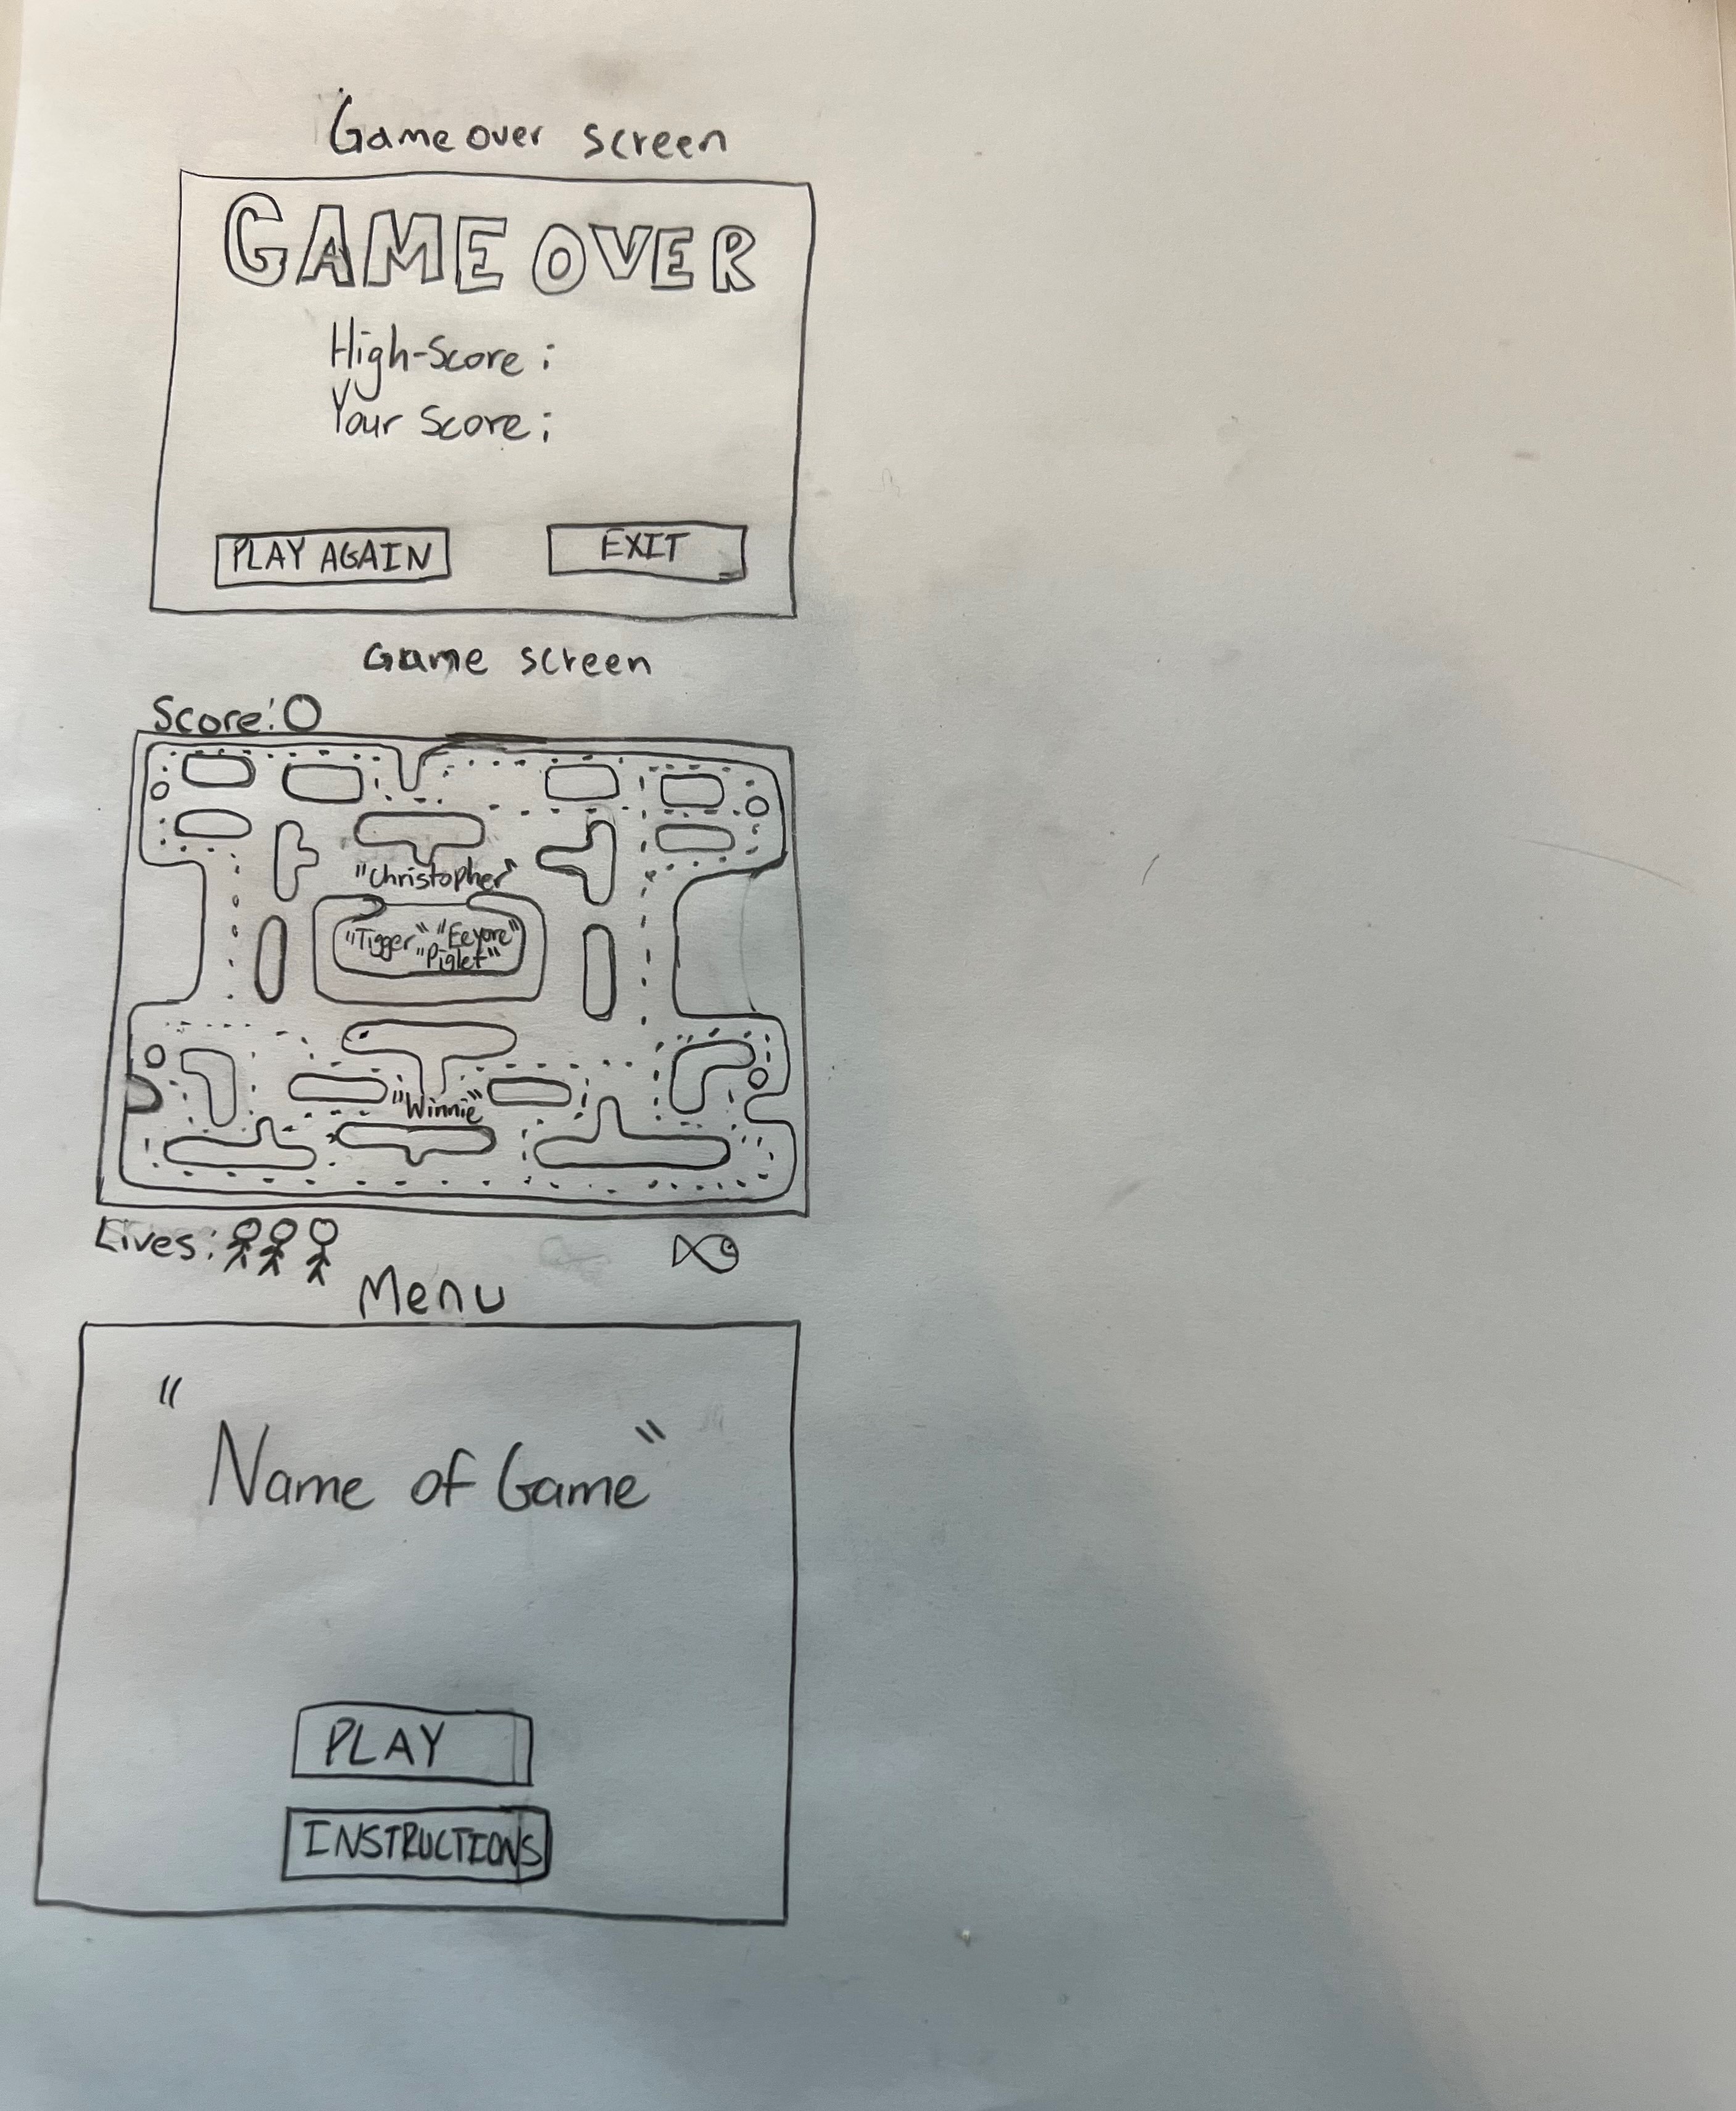 Game over screen
GAME OVER
High-Score:
Your Score:
PLAY AGAIN
EXIT
Game screen
Score: 0
"Christopher"
"Tigger" "Eeyore"
"Piglet"
"Winnie"
Lives:
Menu
"Name of Game"
PLAY
INSTRUCTIONS